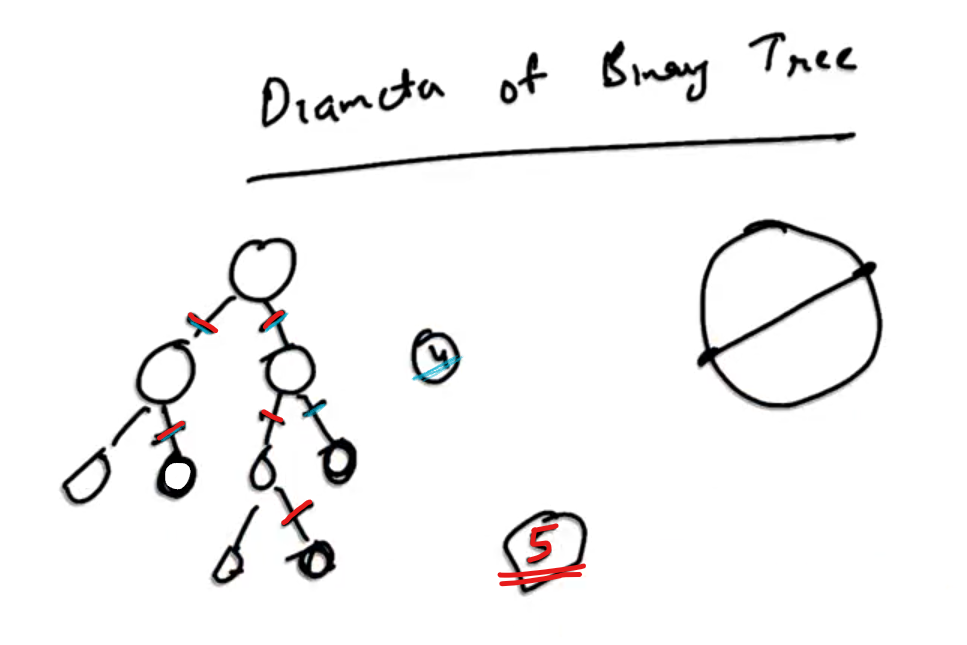 Diameter of Binary Tree
4
5